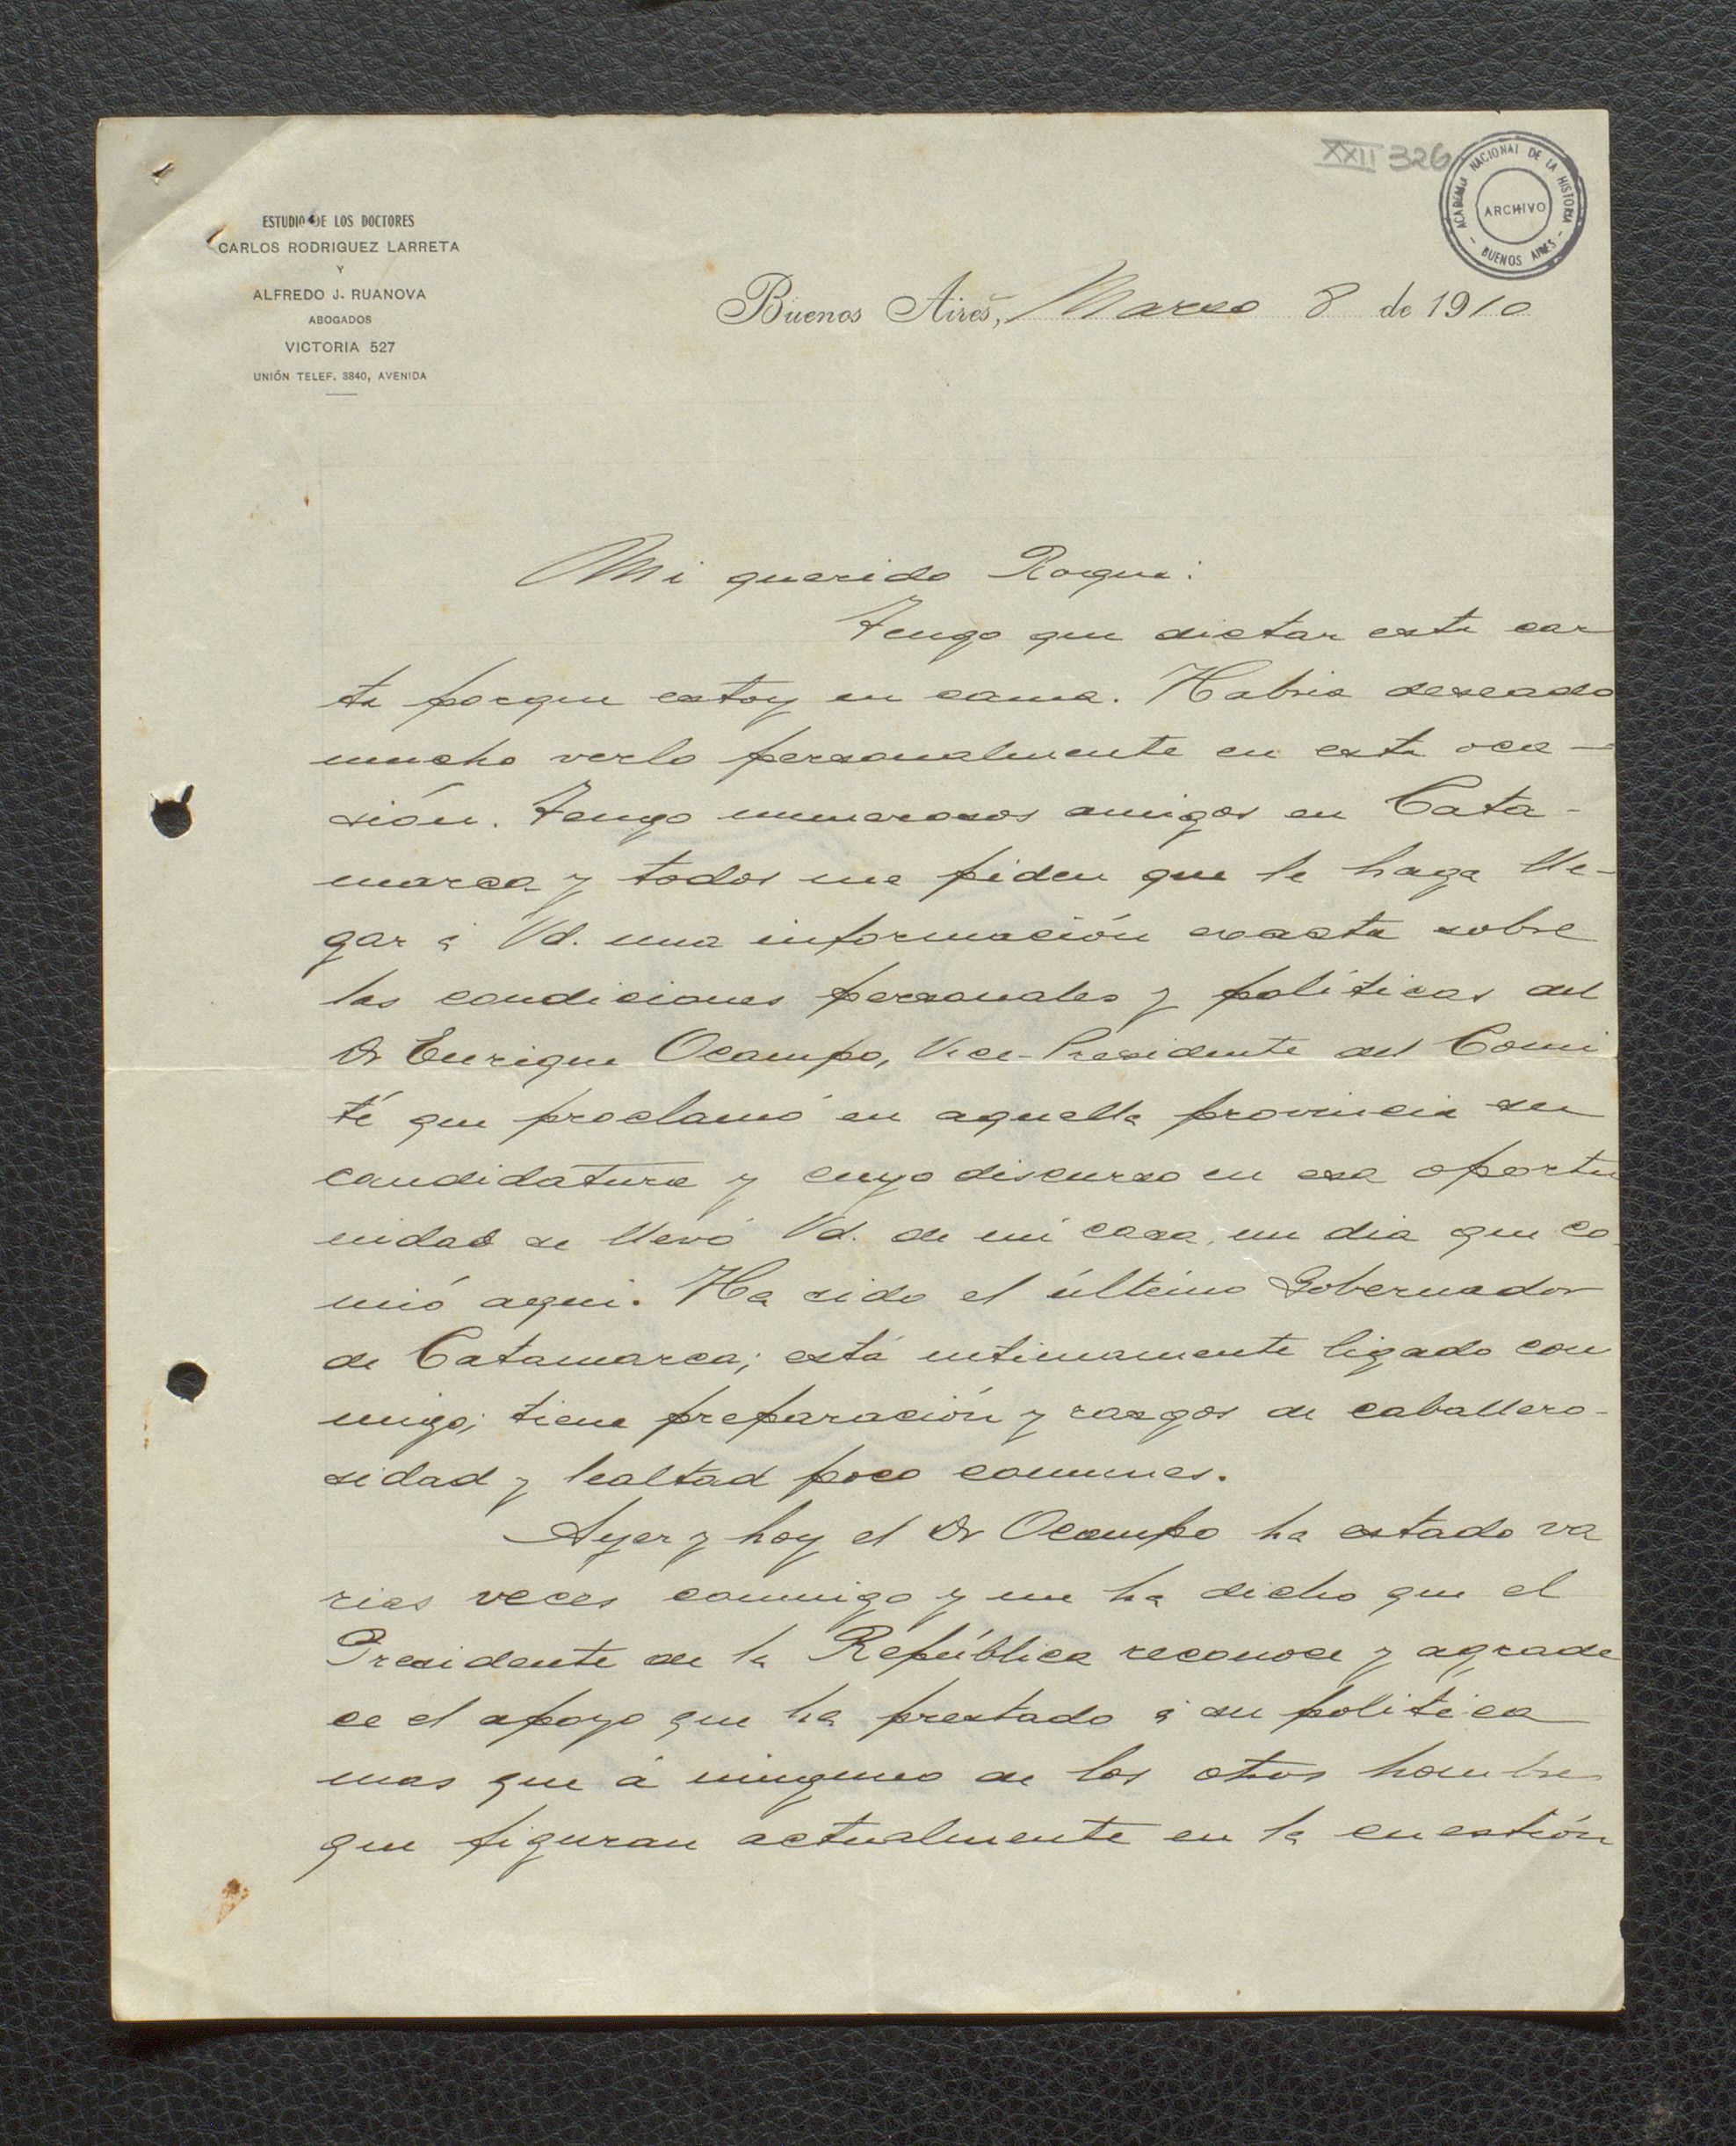 XXII 326
ACADEMIA NACIONAL DE LA HISTORIA
ARCHIVO
- BUENOS AIRES -
ESTUDIO DE LOS DOCTORES
CARLOS RODRIGUEZ LARRETA
Y
ALFREDO J. RUANOVA
ABOGADOS
VICTORIA 527
UNIÓN TELEF. 3840, AVENIDA
Buenos Aires, Marzo 8 de 1910
Mi querido Roque:
Tengo que dictar esta car
ta porque estoy en cama. Habria deseado
mucho verlo personalmente en esta oca-
sión. Tengo numerosos amigos en Cata-
marca y todos me piden que le haga lle-
gar á Vd. una información exacta sobre
las condiciones personales y políticas del
Dr Enrique Ocampo, Vice-Presidente del Comi
té que proclamó en aquella provincia su
candidatura y cuyo discurso en esa oportu
nidad se llevó Vd. de mi casa, un dia que co-
mió aqui. Ha sido el último Gobernador
de Catamarca; está intimamente ligado con
migo; tiene preparación y rasgos de caballero-
sidad y lealtad poco comunes.
Ayer y hoy el Dr Ocampo ha estado va
rias veces conmigo y me ha dicho que el
Presidente de la República reconoce y agrade
ce el apoyo que ha prestado á su política
mas que á ninguno de los otros hombres
que figuran actualmente en la cuestión